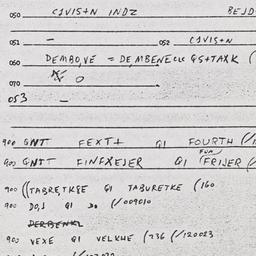 050 C1VIS+N INDZ BEJD
051 — 052 C1VIS+N
060 DEMBO,VE = DEMBENECLE GS+TAXK (
070 O
053 —
900 GNTT FEXT+ GI FOURTH (/1
900 GNTT FINFXEJER GI FUR (FRIJER (/
900 ((TABRE,TKGE GI TABURETKE (160
900 DO,J GI DO (/009010
DERBENKL
900 VEXE GI VELKHE (736 (/120023